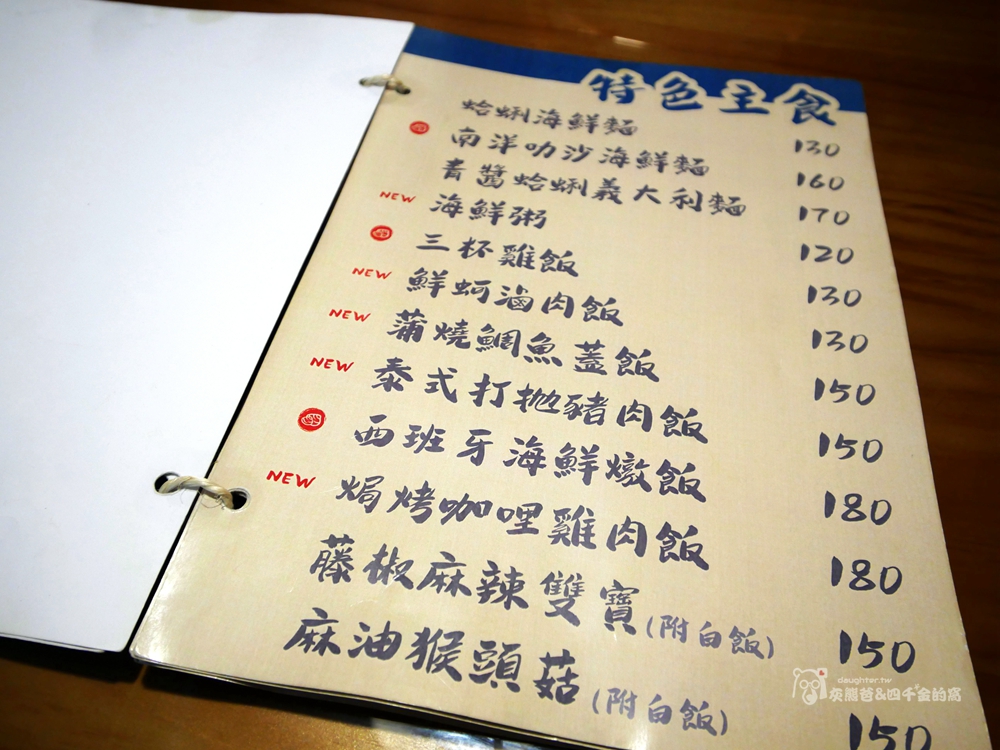 特色主食
蛤蜊海鮮麵 130
南洋叻沙海鮮麵 160
青醬蛤蜊義大利麵 170
NEW 海鮮粥 120
三杯雞飯 130
NEW 鮮蚵滷肉飯 130
NEW 蒲燒鯛魚蓋飯 150
NEW 泰式打拋豬肉飯 150
西班牙海鮮燉飯 180
NEW 焗烤咖哩雞肉飯 180
藤椒麻辣雙寶(附白飯) 150
麻油猴頭菇(附白飯) 150
daughter.tw
灰熊爸&四千金的窩